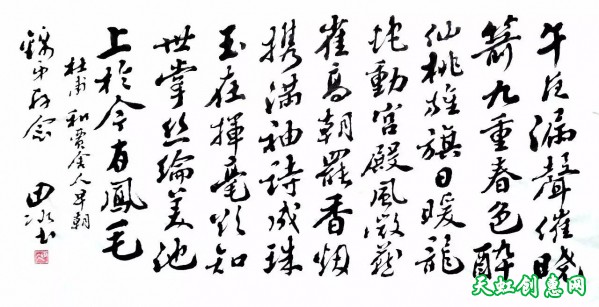 午夜漏聲催曉
箭九重春色醉
仙桃旌旗日暖龍
蛇動宮殿風微燕
雀高朝罷香烟
携滿袖詩成珠
玉在揮毫欲知
世掌絲綸美池
上於今有鳳毛
杜甫 和賈舍人早朝
存念
田冰书
天虹创意网